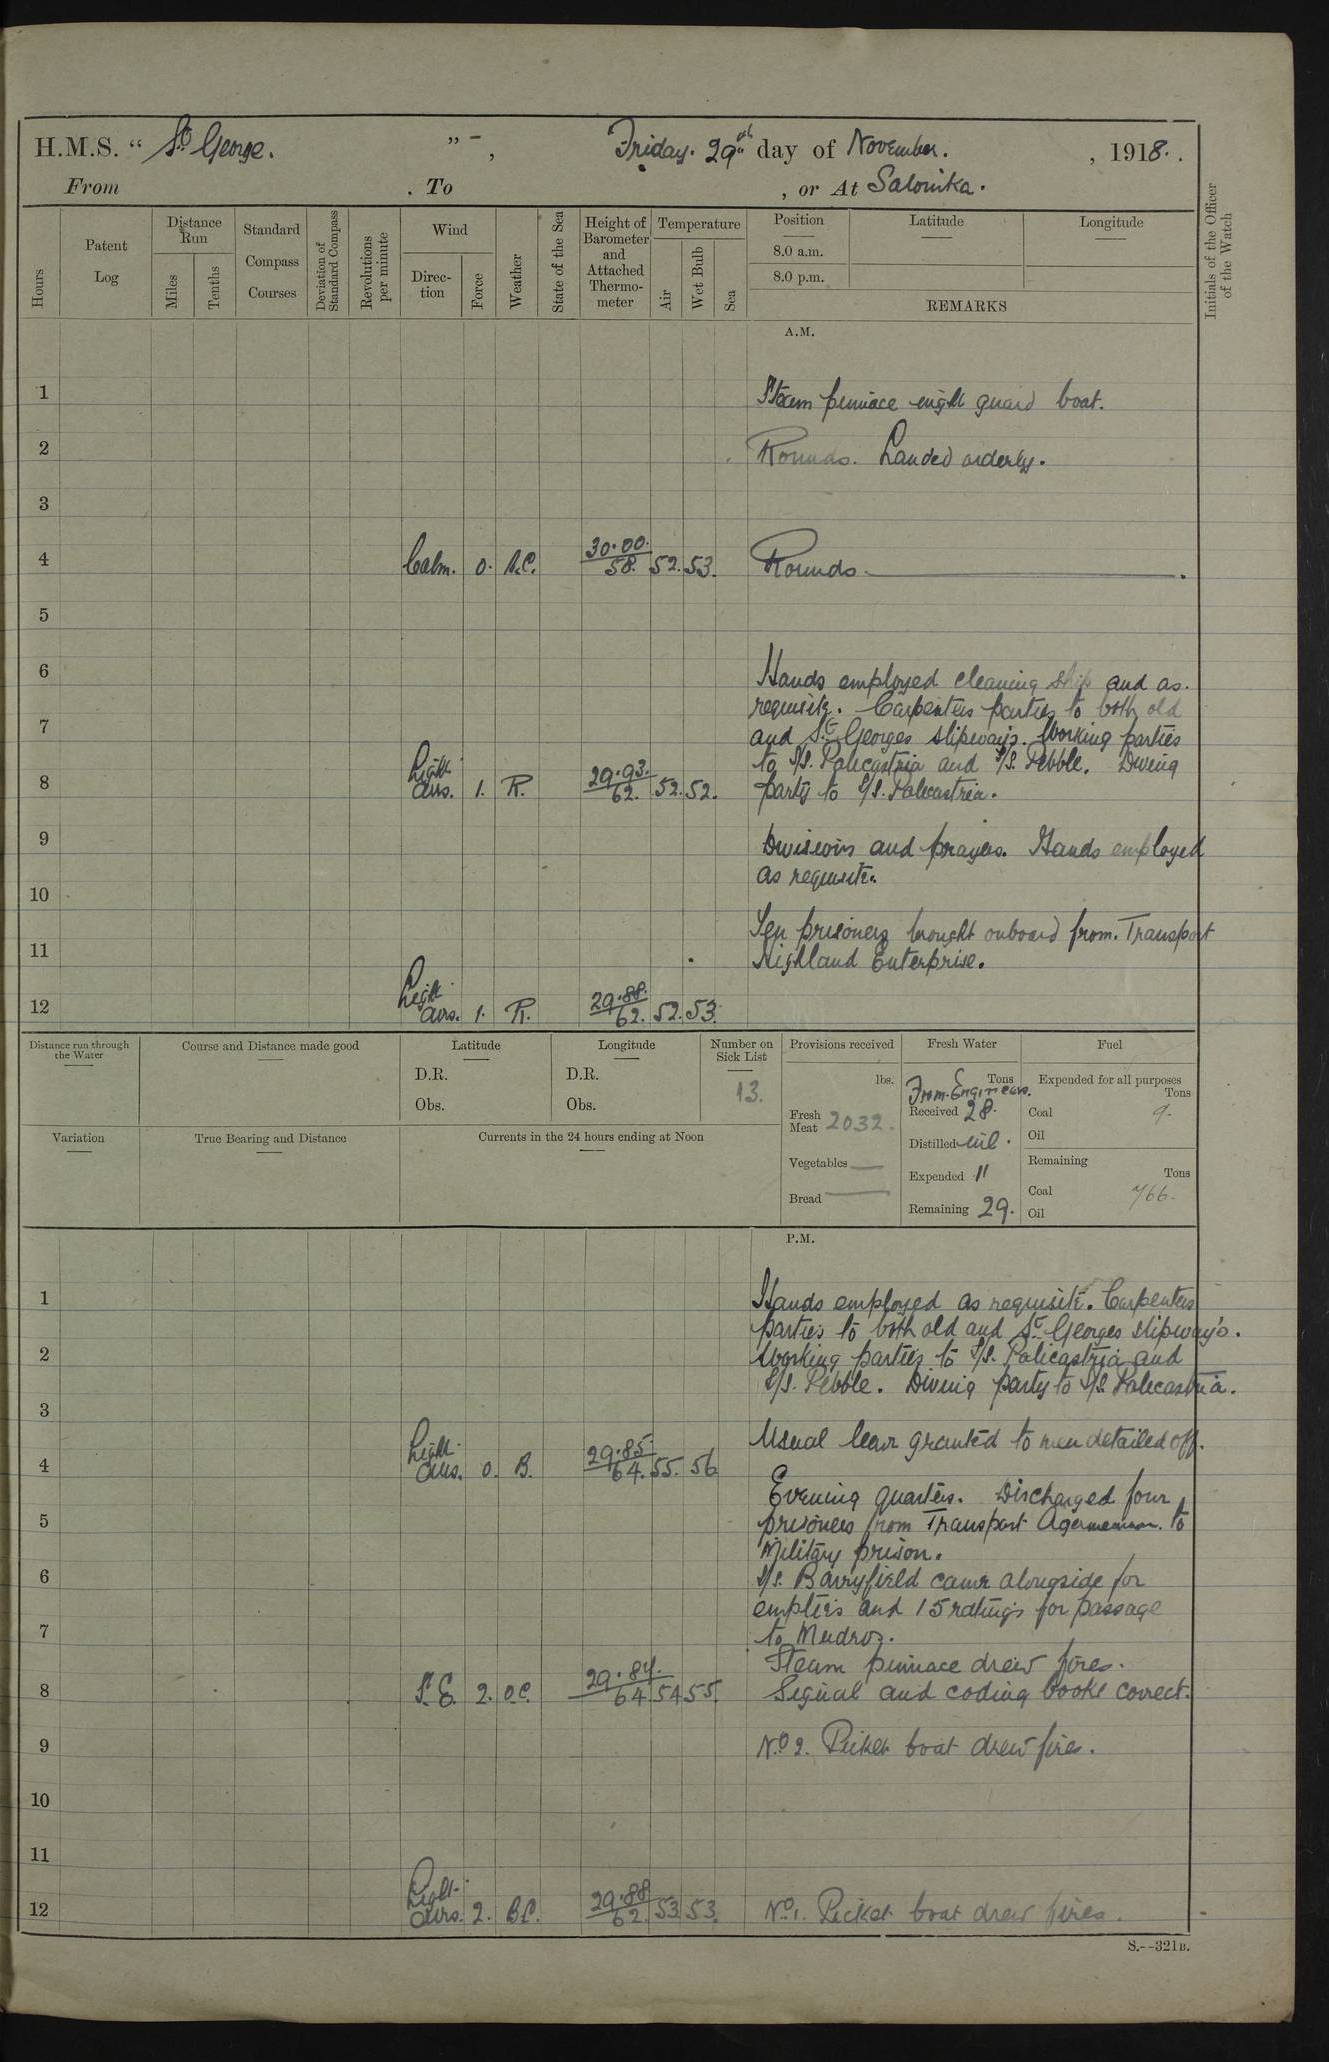 H.M.S. “ St George. ” – , Friday. 29th day of November. , 1918.
From . To , or At Salonika.
Hours
Patent Log
Distance Run
Miles
Tenths
Standard Compass Courses
Deviation of Standard Compass
Revolutions per minute
Wind
Direc-tion
Force
Weather
State of the Sea
Height of Barometer and Attached Thermo-meter
Temperature
Air
Wet Bulb
Sea
Position Latitude Longitude
8.0 a.m.
8.0 p.m.
REMARKS
Initials of the Officer of the Watch
A.M.
1 Steam pinnace night guard boat.
2 Rounds. Landed orderly.
3
4 Calm. 0. B.C. 30.00. 58. 52. 53. Rounds
5
6 Hands employed cleaning ship and as.
requisite. Carpenters parties to both old
7 and St Georges slipways. Working parties
to S/S. Policastria and S/S. Pebble. Diving
8 Light airs. 1. R. 29.93. 62. 52. 52. party to S/S. Palecastria.
9 Divisions and prayers. Hands employed
as requisite.
10
Ten prisoners brought onboard from. Transport
11 Highland Enterprise.
12 Light airs. 1. R. 29.88. 62. 52. 53.
Distance run through the Water
Course and Distance made good
Latitude
D.R.
Obs.
Longitude
D.R.
Obs.
Number on Sick List
13.
Provisions received
lbs.
Fresh Meat 2032.
Vegetables —
Bread —
Fresh Water
Tons
From Engineers.
Received 28.
Distilled nil.
Expended 11
Remaining 29.
Fuel
Expended for all purposes
Tons
Coal 9.
Oil
Remaining
Tons
Coal 766.
Oil
Variation
True Bearing and Distance
Currents in the 24 hours ending at Noon
P.M.
1 Hands employed as requisite. Carpenters
parties to both old and St Georges slipways.
2 Working parties to S/S. Policastria and
S/S. Pebble. Diving party to S/S. Palecastria.
3
Usual leave granted to men detailed off.
4 Light airs. 0. B. 29.85. 64. 55. 56
Evening quarters. Discharged four
5 prisoners from Transport Agamemnon. to
Military prison.
6 S/S. Barryfield came alongside for
empties and 15 ratings for passage
7 to Mudros.
Steam pinnace drew fires.
8 S.E. 2. O.C. 29.84. 64 54 55. Signal and coding books correct.
9 No 2. Picket boat drew fires.
10
11
12 Light airs. 2. B.C. 29.88 62. 53. 53. No 1. Picket boat drew fires.
S.--321B.